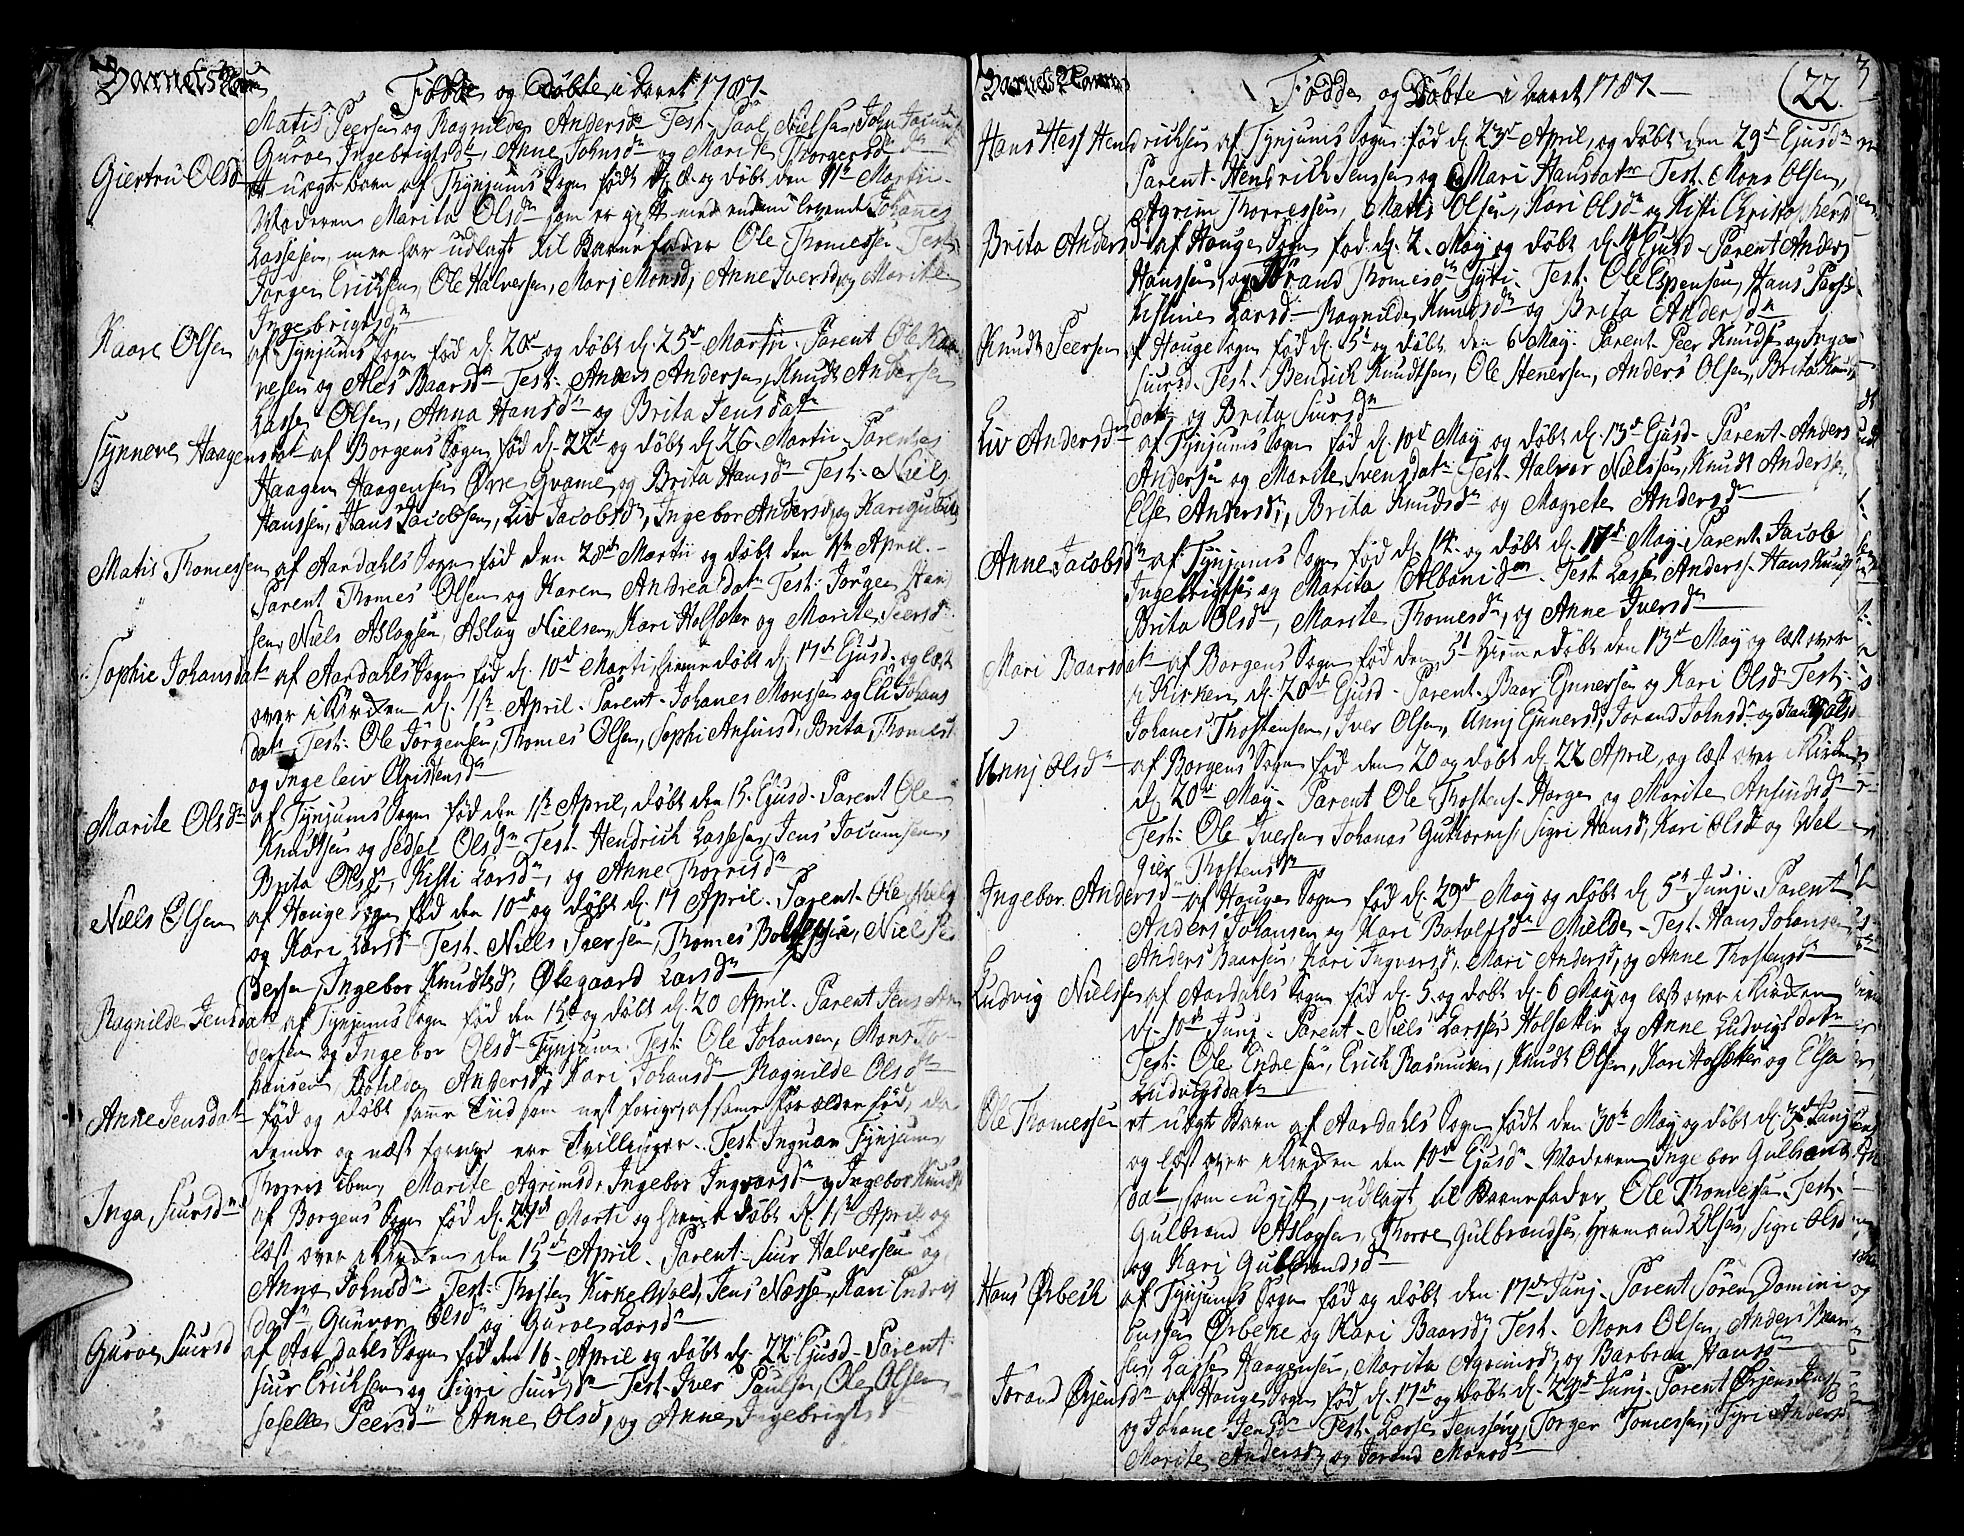 Barnets Navn
Fødde og Døbte i Aaret 1787.
Matis Peersen og Ragnilde Andersdr Test. Paal Nielsen, John Jacum
Guroe Ingebrigtsdr, Anne Johnsdr og Marite Thorgersdr
Giertru Olsd et uægte barn af Thynjums Sogn født d. 8. og døbt den 11te Martii
Moderen Marita Olsdr som er gift med endnu levende Johanes
Lassesen, men har udlagt til Barnefader Ole Thomessen Test:
Jørgen Erichsen, Ole Halversen, Mari Monsd, Anne Iversd, og Marite
Ingebrigtsdr
Kaare Olsen af Tynjums Sogn fød d. 20de og døbt d. 25de Martii. Parent Ole Kaa
resen og Ales Baarsdr Test: Anders Andersen, Knudt Andersen
Lasse Olsen, Anna Hansdr og Brita Jensdatr
Synneve Haagensdatr af Borgens Sogn fød d. 22de og døbt d. 26. Martii. Parentes
Haagen Haagensen Øvre Qvame, og Brita Hansdr Test. Niels
Hanssen, Hans Jacobsen, Liv Jacobsdr, Ingebor Andersd, og Kari
Matis Thomessen af Aardahls Sogn fød den 28de Martii og døbt den 11te April.
Parent Thomes Olsen og Karen Andreadatr Test: Jørgen Han
sen, Niels Aslagsen, Aslag Nielsen, Kari Holsæter og Marite Peersdr
Sophie Johansdatr af Aardahls Sogn fød d. 10de Marti hiemedøbt d. 17de Ejusd. og læst
over i Kircken d. 11te April. Parent. Johanes Monssen og Eli Johans
datr Test: Ole Jørgensen, Thomes Olsen, Sophi Ansinsd, Brita Thomesd
og Ingeleiv Christensdr
Marite Olsdr af Tynjums Sogn fød den 11te April, døbt den 15. Ejusd. Parent Ole
Knudtsen og Sedsel Olsdr Test. Hendrich Lassesen, Jens Jocumsen,
Brita Olsdr, Kisti Larsdr, og Anne Thorrisdr
Niels Olsen af Houge Sogn fød den 10de og døbt d. 17 April. Parent. Ole Niels
og Kari Larsdr Test. Niels Iversen, Thomes, Niels Pe
dersen, Ingebor Knudtsd, Ølegaard Larsdr
Ragnilde Jensdatr af Tynjums Sogn fød den 15de og døbt d. 20 April. Parent Jens
versen og Ingebor Olsd Tynjum. Test: Ole Johansen, Mons Jo
hansen, Bohilde Andersdr, Kari Johansdr Ragnilde Olsdr
Anne Jensdatr fød og døbt samme Tiid som næst forige, af samme Forældre fød, da
denne og næst forrige var Tvillinger. Test. Ingvar Tynjum,
Thorris ibm, Marite Agrimsdr, Ingebor Ingvarsdr og Ingebor Knuds
Inga Siursdr af Borgens Sogn fød d. 27de Marti og hiemedøbt d. 11te April og
læst over i Kircken den 15de April. Parent. Siur Halversen og
Anne Johnsdr Test. Thosten Kirkevold, Jens Næsse, Kari Endris
datr, Gunvor Olsd og Guroe Larsdr
Guroe Siursd af Aardahls Sogn fød den 16. April og døbt d. 22. Ejusd. Parent:
Siur Erichsen og Sigri Siursdr Test. Iver Paulsen, Ole Olsen
Seselle Peersdr Anne Olsd, og Anne Ingebrigtsd
Barnets Navn
Fødde og Døbte i Aaret 1787.
22
3
Hans Hess Hendrichsen af Tynjums Sogn fød d. 23de April, og døbt den 29de Ejusdn
Parent. Hendrich Jenssen og Mari Hansdatr Test. Mons Olsen,
Agrim Thorressen, Matis Olsen, Kari Olsdr og Kisti Christophers
Brita Andersdr af Houge Sogn fød d. 2. May og døbt d. Ejusd. Parent Anders
Hanssen, og Jorand Thomesdr Test: Ole Espensen, Hans Peers
Kistine Larsdr Ragnilde Knudsdr og Brita Andersdr
Knudt Peersen af Houge Sogn fød d. 5te og døbt den 6 May. Parent. Peer Knudts og Inga
Siursd. Test. Bendich Knudtsen, Ole Stenersen, Anders Olsen, Brita Knuds
datr og Brita Siursdr
Liv Andersdr af Tynjums Sogn fød d. 10de May og døbt d. 13de Ejusd. Parent. Anders
Andersen og Marite Svensdatr Test. Halvor Nielssen, Knudt Anderssen,
Else Andersdr, Brita Knudsdr og Magrete Andersdr
Anne Jacobsdr af Tynjums Sogn fød d. 14. og døbt d. 17de May. Parent Jacob
Ingebrigtsen og Marita Albonidr. Test Lasse Anders. Hans Knudts
Brita Olsdr, Marite Thomesdr, og Anne Iversdr
Mari Baarsdatr af Borgens Sogn fød den 5te hiemedøbt den 13de May og læst over
i Kirken d. 20de Ejusd. Parent. Baar Einersen og Kari Olsd Test.
Johanes Thostensen, Iver Olsen, Unni Einersdr, Jorand Johnsdr og
Unni Olsdr af Borgens Sogn fød den 20 og døbt d. 22 April, og læst over i Kirken
d. 20de May. Parent Ole Thostens. Horge og Marite Ansindsdr
Test: Ole Iversen Johanes Guttorms, Sigri Hansdr, Kari Olsdr og Vel
gier Thostensdr
Ingebor Andersdr af Houge Sogn fød d. 29de May og døbt d. 5te Junii. Parent
Anders Johansen og Kari Botolfsdr Mielde. Test. Hans Johansen
Anders Baarsen, Kari Ingvarsdr, Mari Andersd, og Anne Thostensdr
Ludvig Nielssen af Aardahls Sogn fød d. 5. og døbt d. 6 May og læst over i Kircken
d. 10de Junj. Parent. Niels Larssen Holsætter og Anne Ludvigsdatr
Test: Ole Endresen, Erich Rasmusen, Knudt Olsen, Kari Holsætter og Elsa
Ludvigsdatr
Ole Thomessen et uægte Barn af Aardahls Sogn født den 30te May og døbt d. 3de Junj
og læst over i Kircken den 10de Ejusdn. Moderen Ingebor Gulbrands
datr, som ugift, udlagt til Barnefader Ole Thomessen. Test.
Gulbrand Aslagsen, Thorve Gulbrandsen, Hermand Olsen, Sigri Olsd
og Kari Gulbrandsdr
Hans Ørbech af Tynjums Sogn fød og døbt den 17de Junj. Parent Søren Domini
cussen Ørbeke og Kari Baarsdr, Test. Mons Olsen, Anders Baar
sen, Lasse Haagensen, Marita Agrimsdr, og Barbraa Hansdr
Jorand Ørjensdr af Houge Sogn fød d. 17de og døbt d. 24de Junj. Parent Ørjens Jens
og Johane Jensdr Test. Lasse Jenssen, Torger Tomessen, Syri Andersd
Marite Andersdr, og Jorand Monsdr